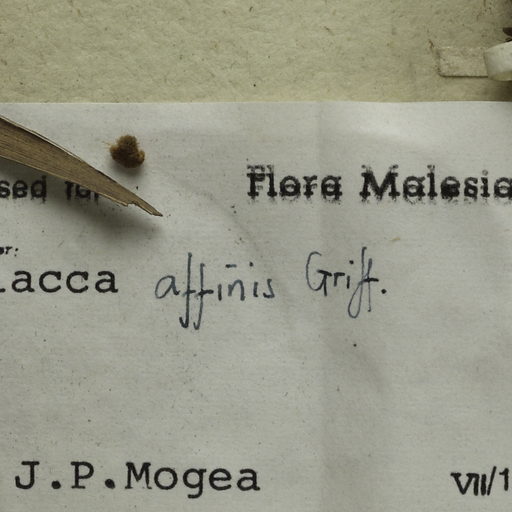 sed for Flora Malesia
er:
lacca affinis Griff.
J.P.Mogea VII/1